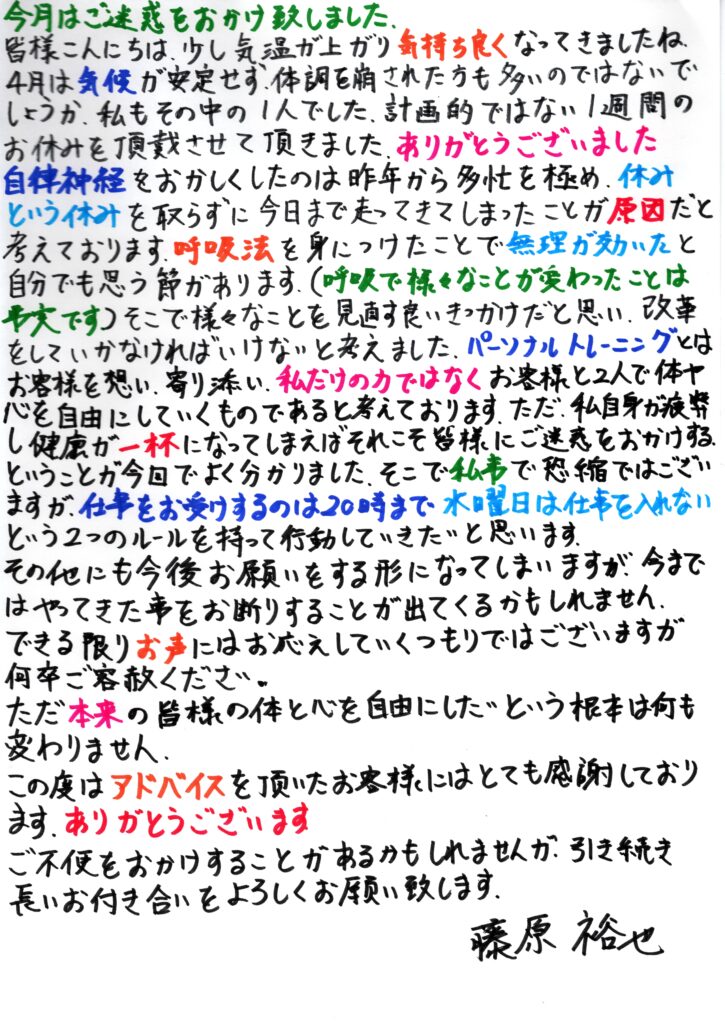 今月はご迷惑をおかけ致しました.
皆様こんにちは.少し気温が上がり気持ち良くなってきましたね.
4月は気候が安定せず.体調を崩された方も多いのではないで
しょうか.私もその中の1人でした.計画的ではない1週間の
お休みを頂戴させて頂きました.ありがとうございました
自律神経をおかしくしたのは昨年から多忙を極め.休み
という休みを取らずに今日まで走ってきてしまったことが原因だと
考えております.呼吸法を身につけたことで無理が効いたと
自分でも思う節があります.(呼吸で様々なことが変わったことは
事実です)そこで様々なことを見直す良いきっかけだと思い.改革
をしていかなければいけないと考えました.パーソナルトレーニングとは
お客様を想い.寄り添い.私だけの力ではなくお客様と2人で体や
心を自由にしていくものであると考えております.ただ.私自身が疲弊
し健康が一杯になってしまえばそれこそ皆様にご迷惑をおかけする.
ということが今回でよく分かりました.そこで私事で恐縮ではござい
ますが.仕事をお受けするのは20時まで 水曜日は仕事を入れない
という2つのルールを持って行動していきたいと思います.
その他にも今後お願いをする形になってしまいますが.今まで
はやってきた事をお断りすることが出てくるかもしれません.
できる限りお声にはお応えしていくつもりではございますが
何卒ご容赦ください。
ただ本来の皆様の体と心を自由にしたいという根本は何も
変わりません.
この度はアドバイスを頂いたお客様にはとても感謝しており
ます.ありがとうございます
ご不便をおかけすることがあるかもしれませんが.引き続き
長いお付き合いをよろしくお願い致します.
藤原 裕也